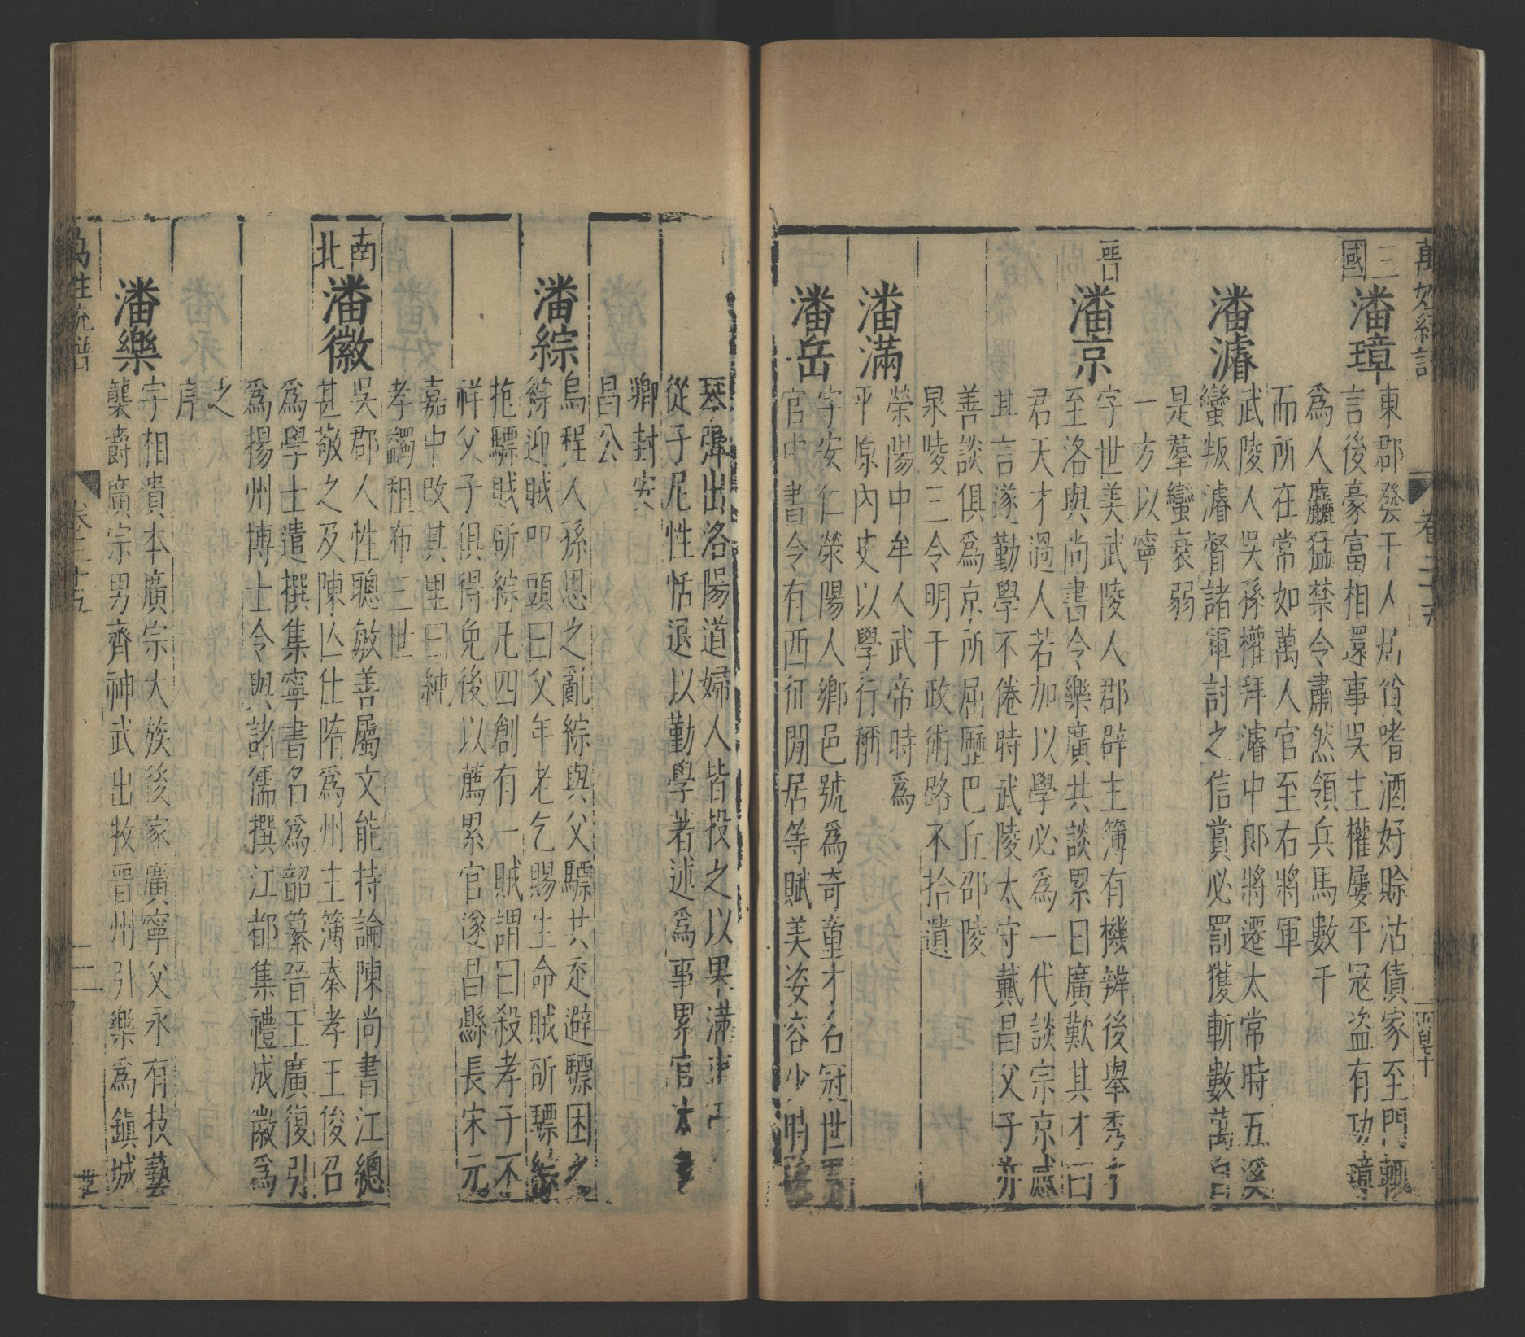 萬姓統譜
卷二十五
三國
潘璋
東郡發干人居貧嗜酒好賒沽債家至門輒
言後豪富相還事吳主權屢平寇盜有功璋
爲人麤猛禁令肅然領兵馬數千
而所在常如萬人官至右將軍
潘濬
武陵人吳孫權拜濬中郎將遷太常時五溪
蠻叛濬督諸軍討之信賞必罰獲斬數萬自
是羣蠻衰弱
一方以寧
晉
潘京
字世美武陵人郡辟主簿有機辨後舉秀才
至洛與尚書令樂廣共談累日廣歎其才曰
君天才過人若加以學必為一代談宗京感
其言遂勤學不倦時武陵太守戴昌父子亦
善談俱爲京所屈歷巴丘邵陵
泉陵三令明于政術路不拾遺
潘滿
滎陽中牟人武帝時爲
平原內史以學行稱
潘岳
字安仁滎陽人鄉邑號爲奇童才名冠世
官中書令有西征閒居等賦美姿容少時
琴彈出洛陽道婦人皆投之以果滿車
從子尼性恬退以勤學著述爲事累官太
卿封安
昌公
潘綜
烏程人孫恩之亂綜與父驃共走避驃困乏
綜迎賊叩頭曰父年老乞賜生命賊斫驃綜
抱驃賊斫綜凡四創有一賊謂曰殺孝子不
祥父子俱得免後以薦累官遂昌縣長宋元
嘉中改其里曰純
孝蠲租布三世
南北
潘徽
吳郡人性聰敏善屬文能持論陳尚書江總
甚敬之及陳亡仕隋爲州主簿秦孝王俊召
爲學士遣撰集字書名爲韻纂晉王廣復引
爲揚州博士令與諸儒撰江都集禮成徽爲
之
序
潘樂
字相貴本廣宗大族後家廣寧父永有技藝
襲爵廣宗男齊神武出牧晉州引樂爲鎭城
萬姓統譜
卷二十五